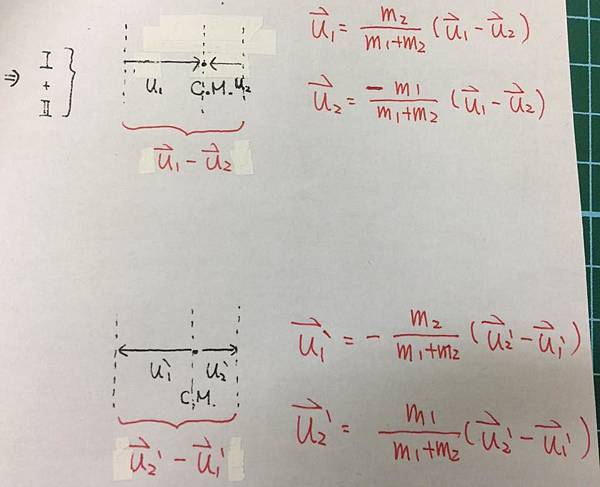 ⇒ I + II }
u₁ C.M. u₂
u⃗₁ - u⃗₂
u⃗₁ = m₂/(m₁+m₂) (u⃗₁ - u⃗₂)
u⃗₂ = -m₁/(m₁+m₂) (u⃗₁ - u⃗₂)
u₁' u₂'
C.M.
u⃗₂' - u⃗₁'
u⃗₁' = - m₂/(m₁+m₂) (u⃗₂' - u⃗₁')
u⃗₂' = m₁/(m₁+m₂) (u⃗₂' - u⃗₁')